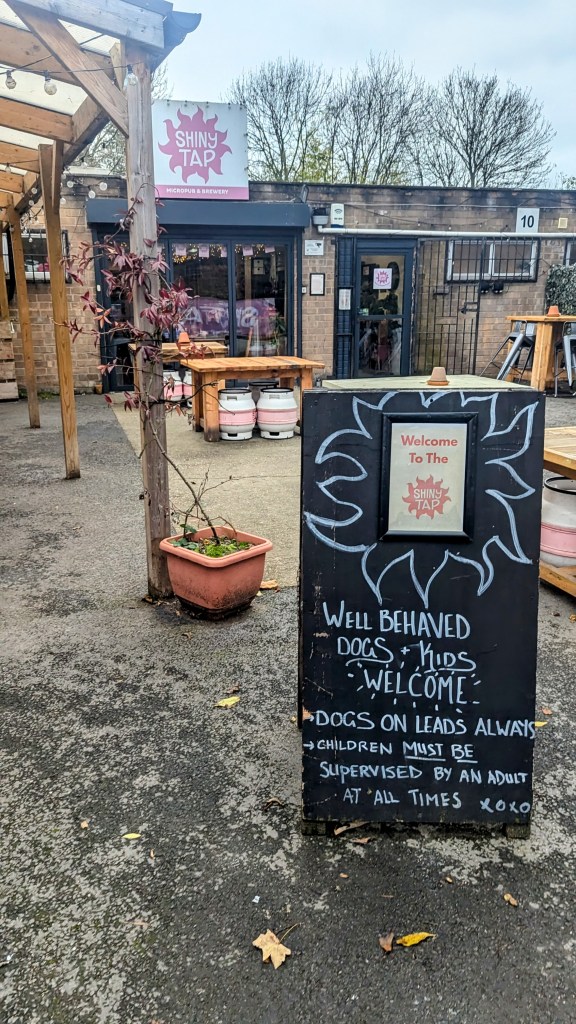 SHINY
TAP
MICROPUB & BREWERY
10
Welcome
To The
SHINY
TAP
WELL BEHAVED
DOGS + KIDS
WELCOME
→DOGS ON LEADS ALWAYS
→CHILDREN MUST BE
SUPERVISED BY AN ADULT
AT ALL TIMES XOXO